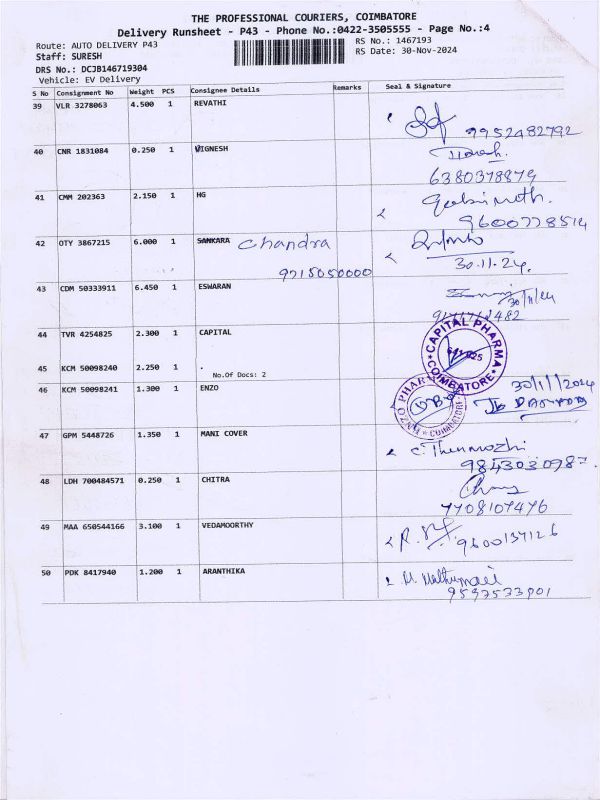 THE PROFESSIONAL COURIERS, COIMBATORE
Delivery Runsheet - P43 - Phone No.:0422-3505555 - Page No.:4
Route: AUTO DELIVERY P43
RS No.: 1467193
Staff: SURESH
RS Date: 30-Nov-2024
DRS No.: DCJB146719304
Vehicle: EV Delivery
S No Consignment No Weight PCS Consignee Details Remarks Seal & Signature
39 VLR 3278063 4.500 1 REVATHI
9952482792
40 CNR 1831084 0.250 1 VIGNESH
6380378879
41 CMM 202363 2.150 1 HG
9600778514
42 OTY 3867215 6.000 1 SANKARA Chandra
9715050000
30.11.24.
43 CDM 50333911 6.450 1 ESWARAN
30/11/24
44 TVR 4254825 2.300 1 CAPITAL
CAPITAL PHARMA
COIMBATORE
45 KCM 50098240 2.250 1 .
No.Of Docs: 2
46 KCM 50098241 1.300 1 ENZO
ENZO PHARMA
COIMBATORE
30/11/2024
47 GPM 5448726 1.350 1 MANI COVER
C. Thenmozhi
9843030987
48 LDH 700484571 0.250 1 CHITRA
7708107476
49 MAA 650544166 3.100 1 VEDAMOORTHY
9600137126
50 PDK 8417940 1.200 1 ARANTHIKA